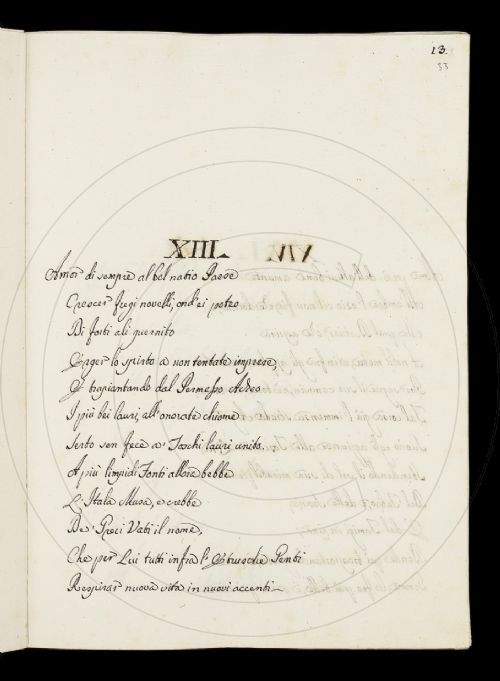 13.
33
XIII.
Amor di sempre al bel natio Paese
Crescer fregi novelli, ond' ei poteo
Di forti ali guernito
Erger lo spirto a non tentate imprese,
E trapiantando dal Permesso Ascreo
I più bei lauri, all' onorate chiome
Serto sen fece a' Toschi lauri unito.
A più limpidi Fonti allora bebbe
L' Itala Musa, e crebbe
De' Greci Vati il nome,
Che per Lui tutti infra l' Etrusche Genti
Respirar nuova vita in nuovi accenti